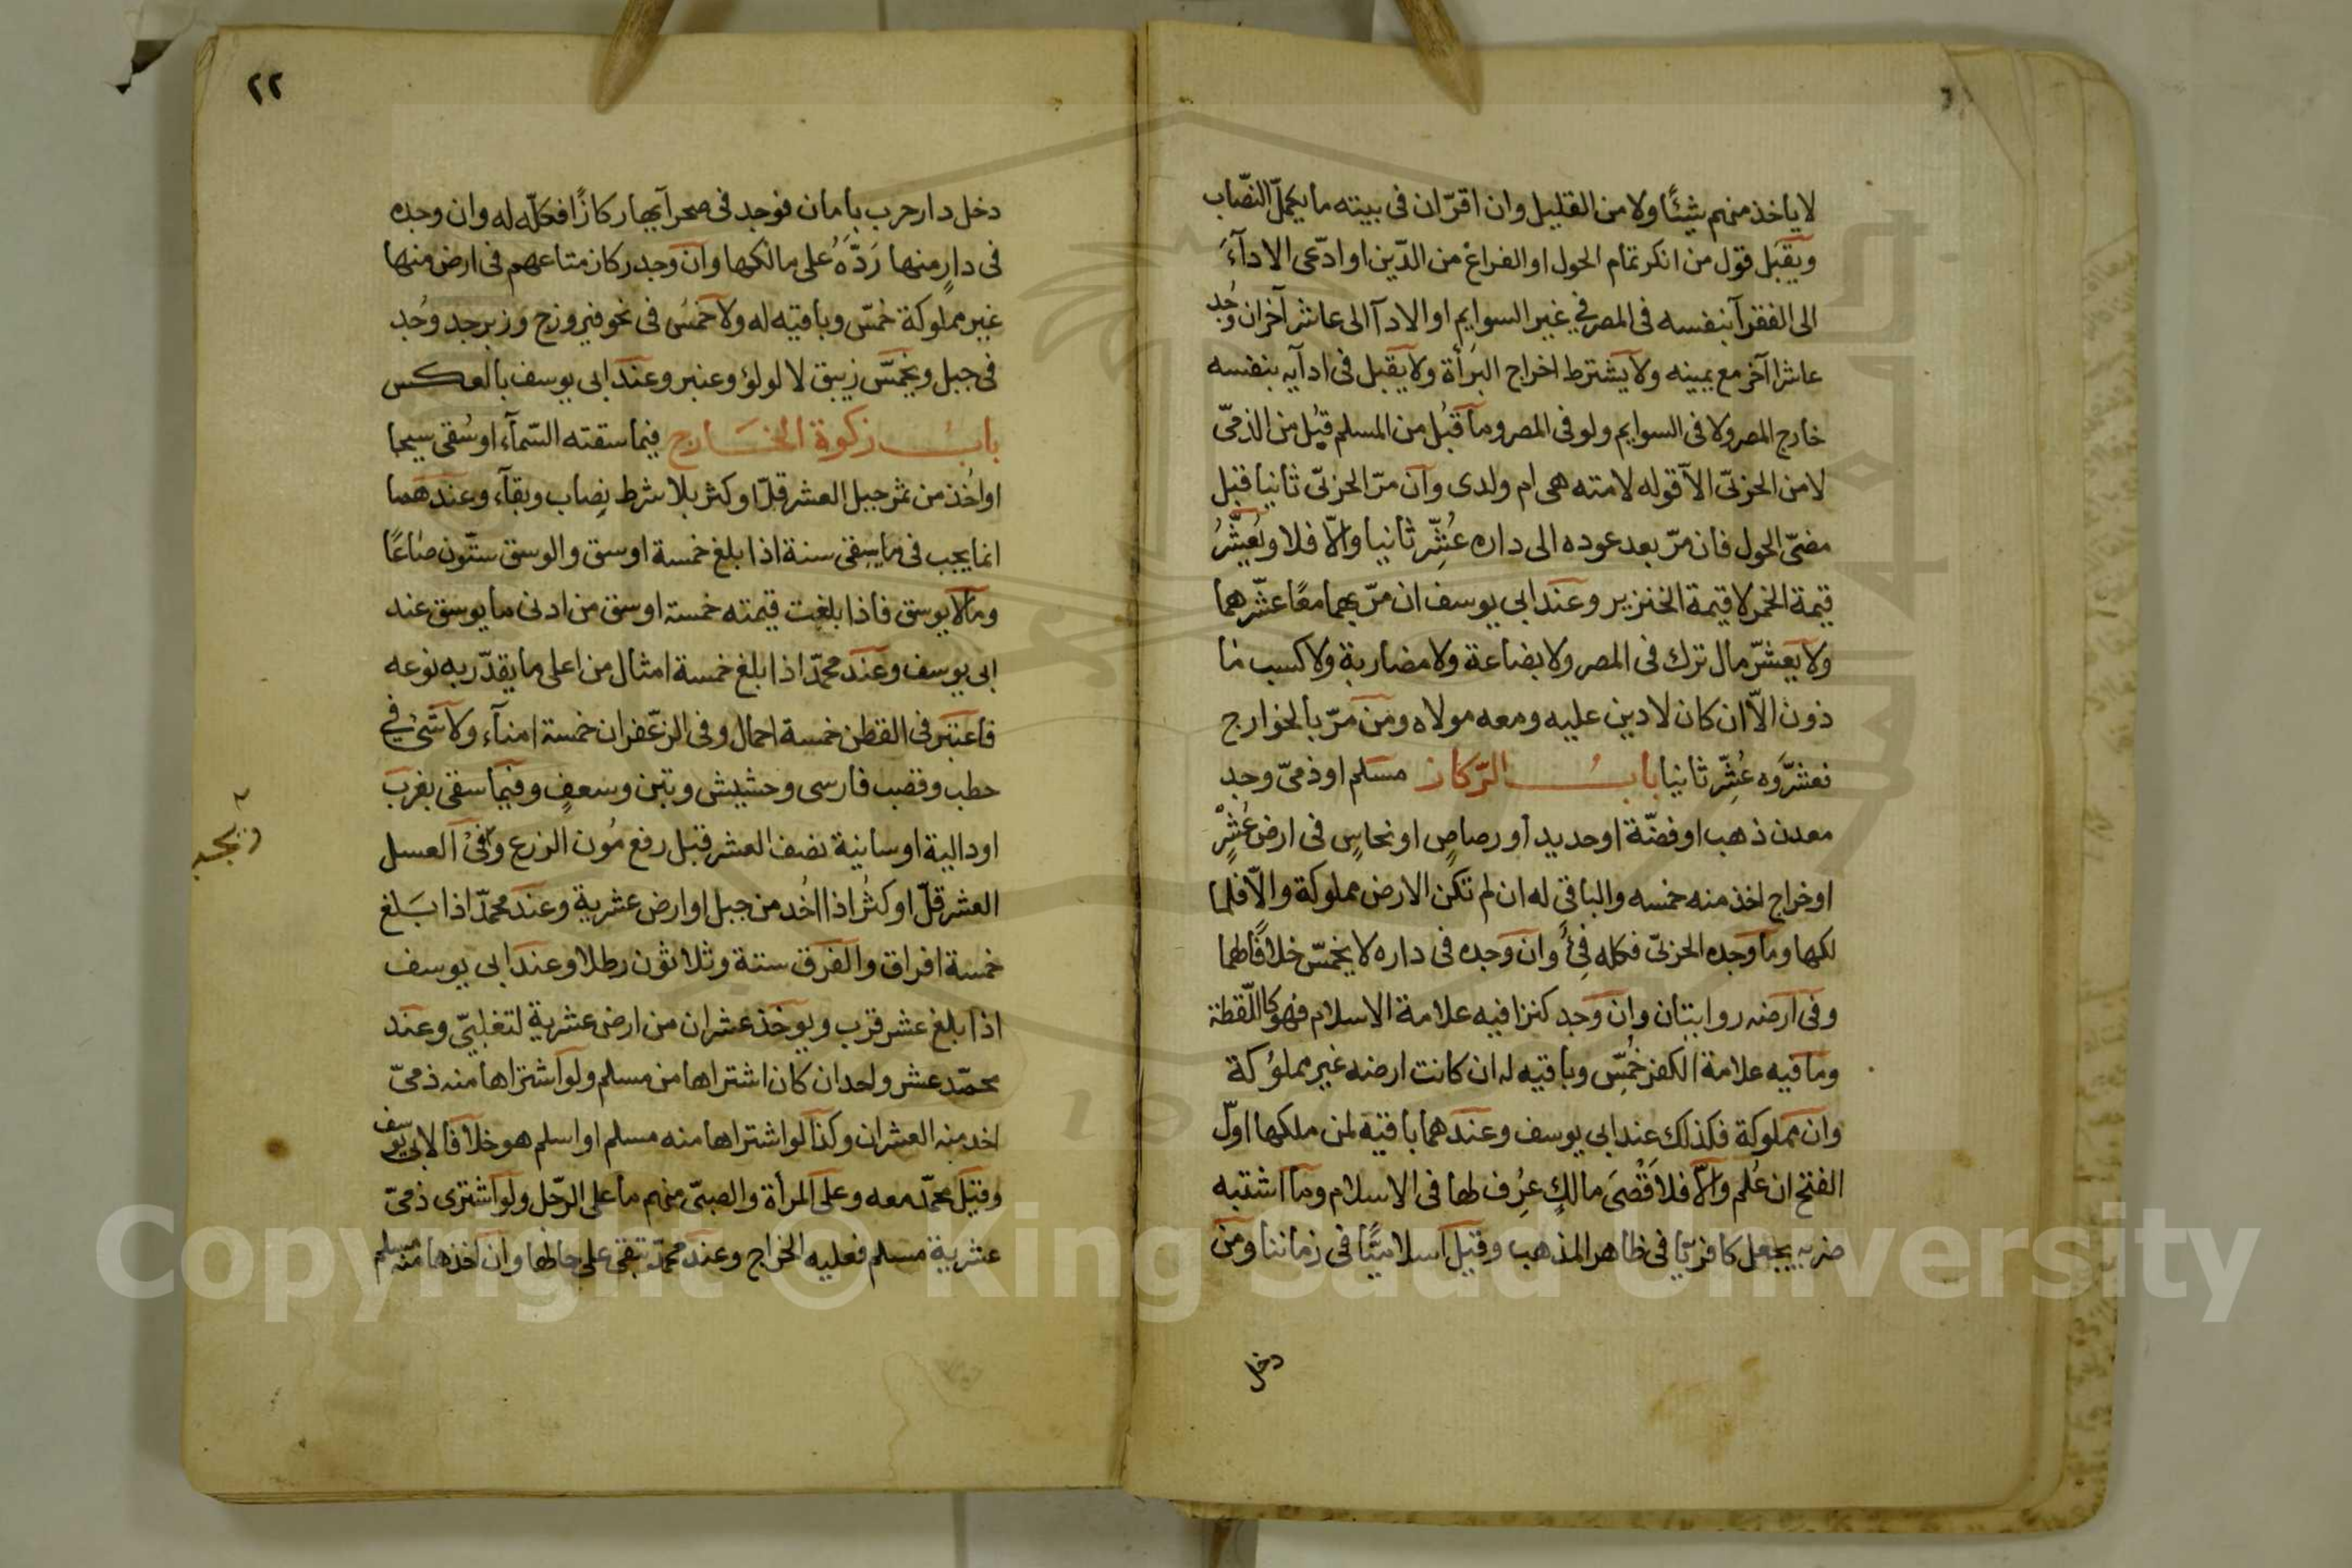 لا ياخذ منهم شيئًا ولا من القليل وان اقرّ ان فى بيته ما يكمّل النّصاب
ويقبل قول من انكر تمام الحول او الفراغ من الدّين او ادّعى الادآء
الى الفقرآ بنفسه فى المصر في غير السوايم او الادآ الى عاشر آخر ان وُجد
عاشر آخر مع يمينه ولا يشترط اخراج البرأة ولا يقبل فى ادآيه بنفسه
خارج المصر ولا فى السوايم ولو فى المصر وما قُبل من المسلم قُبل من الذمىّ
لا من الحربىّ الاّ قوله لامته هى ام ولدى وان مرّ الحربىّ ثانيا قبل
مضىّ الحول فان مرّ بعد عوده الى داره عُشّر ثانيا والاّ فلا ويُعشّرُ
قيمة الخمر لا قيمة الخنزير وعند ابى يوسف ان مرّ بهما معًا عشّرهما
ولا يعشّر مال ترك فى المصر ولا بضاعة ولا مضاربة ولا كسب ما
ذون الاّ ان كان لا دين عليه ومعه مولاه ومن مرّ بالخوارج
فعشّروه عُشّر ثانيا بابُ الرّكاز مسلم او ذمىّ وجد
معدن ذهب او فضّة او حديد او رصاصٍ او نحاسٍ فى ارض عُشْرٍ
او خراج اخذ منه خمسه والباقى له ان لم تكن الارض مملوكة والاّ فلما
لكها وما وجده الحربىّ فكله فئُ وان وجده فى داره لا يخمّس خلافًا لهما
وفى ارضه روايتان وان وجد كنزا فيه علامة الاسلام فهو كاللّقطة
وما فيه علامة الكفر خُمّس وباقيه له ان كانت ارضه غير مملوكة
وان مملوكة فكذلك عند ابى يوسف وعندهما باقيه لمن ملكها اوّل
الفتح ان عُلم والاّ فلاَقْصَى مالكٍ عُرِف لها فى الاسلام وما اشتبه
ضربه يجعل كافريّا في ظاهر المذهب وقيل اسلاميًّا فى زماننا ومن
دخل
٢٢
دخل دار حرب بامان فوجد فى صحرآيها ركازًا فكلّه له وان وجده
فى دارٍ منها رَدَّهُ على مالكها وان وجد ركاز متاعهم فى ارض منها
غير مملوكة خُمّس وباقيه له ولا خمسُ فى نحو فيروزج وزبرجد وُجد
فى جبل ويخمّس زيبق لا لولؤ وعنبر وعند ابى يوسف بالعكس
بابُ زكوة الخَارج فيما سقته السّمآء او سُقى سيحا
او اخذ من ثمر جبل العشر قلّ او كثر بلا شرط نِصاب وبقآء وعندهما
انما يجب فى ما يبقى سنة اذا بلغ خمسة اوسق والوسق ستّون صاعًا
وما لا يوسق فاذا بلغت قيمته خمسة اوسق من ادنى ما يوسق عند
ابى يوسف وعند محمّد اذا بلغ خمسة امثال من اعلى ما يقدّر به نوعه
فاعتبر فى القطن خمسة احمال وفى الزعّفران خمسة امنآء ولا شئ في
حطب وقصب فارسى وحشيش وتبن وسعفٍ وفيما سقى بغرب
او دالية او سانية نصف العشر قبل رفع مُون الزرع وفى العسل
العشر قلّ او كثُر اذا اُخد من جبل او ارض عشرية وعند محمّد اذا بَلغ
خمسة افراق والفرق ستة وثلاثون رطلا وعند ابى يوسف
اذا بلغ عشر قرب ويوخذ عشران من ارض عشرية لتغلبىّ وعند
محمّد عشر واحد ان كان اشتراها من مسلم ولو اشتراها منه ذمىّ
اخد منه العشران وكذا لو اشتراها منه مسلم او اسلم هو خلافا لابى يوسف
وقيل محمّد معه وعلى المرأة والصبىّ منهم ما على الرّجل ولو اشترى ذمىّ
عشرية مسلم فعليه الخراج وعند محمّد تبقى على حالها وان اخذها منه مسلم
Copyright © King Saud University